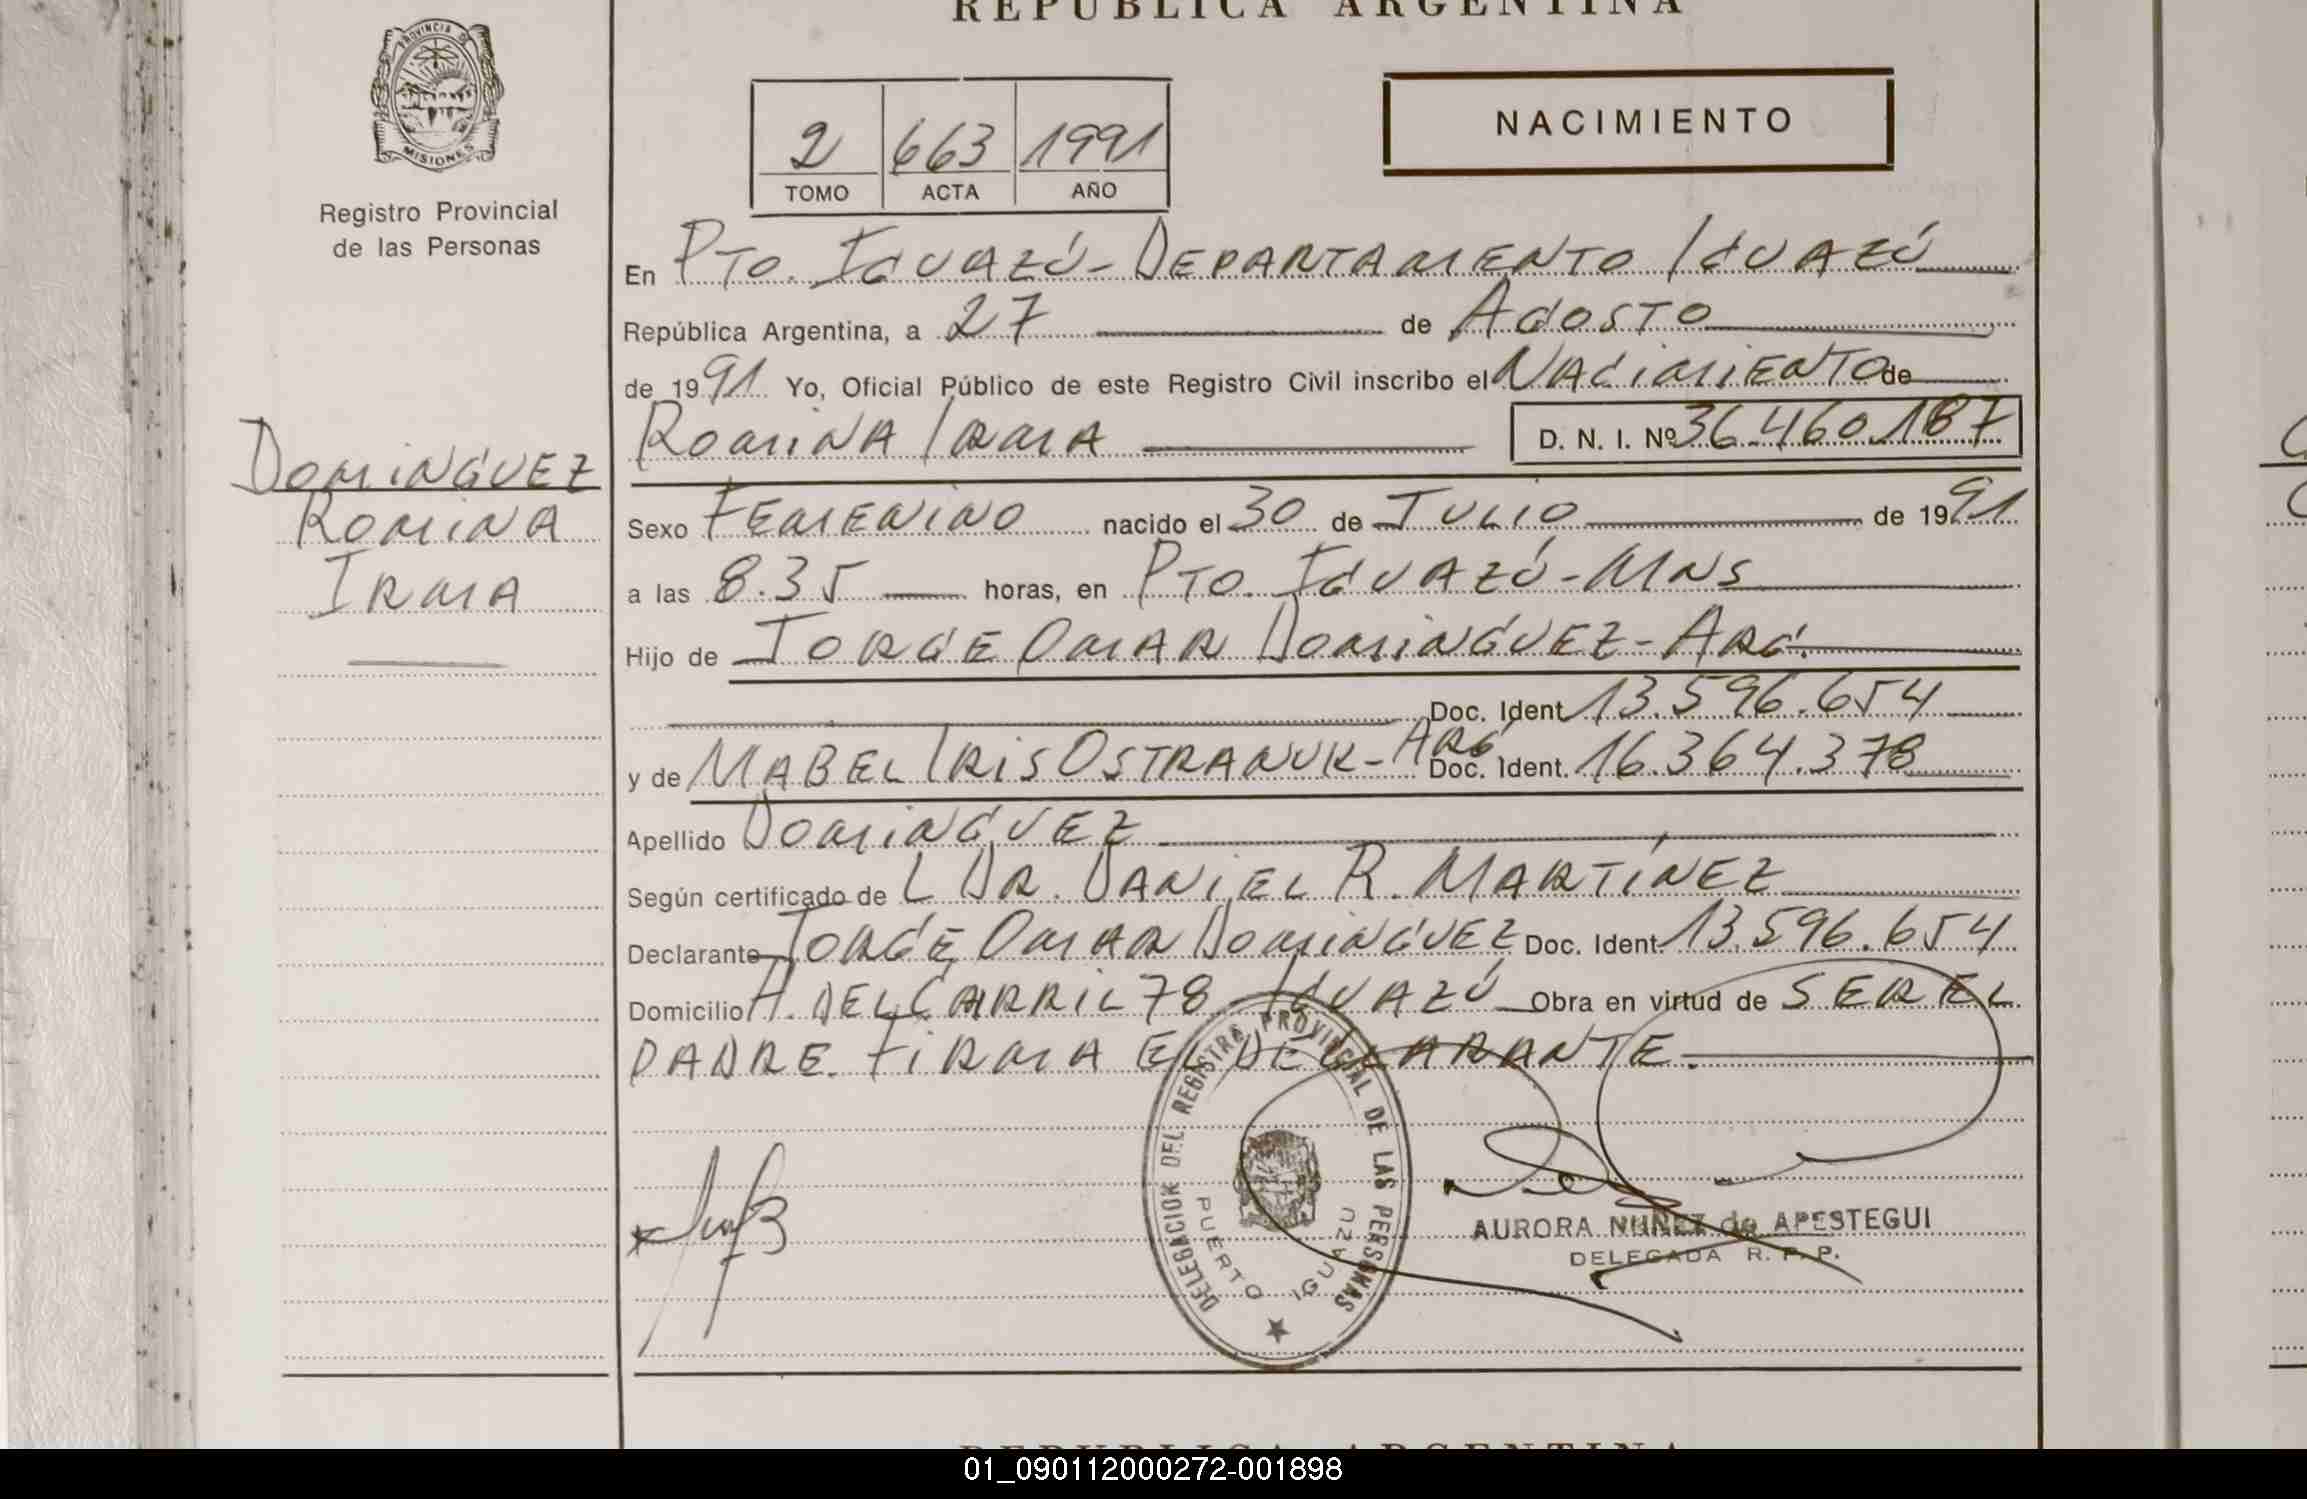 REPUBLICA ARGENTINA
PROVINCIA DE
MISIONES
Registro Provincial
de las Personas
2 663 1991
TOMO ACTA AÑO
NACIMIENTO
En PTO. IGUAZÚ - DEPARTAMENTO IGUAZÚ
República Argentina, a 27 de AGOSTO
de 1991 Yo, Oficial Público de este Registro Civil inscribo el NACIMIENTO de
ROMINA IRMA D. N. I. Nº 36.460.187
DOMINGUEZ
ROMINA
IRMA
Sexo FEMENINO nacido el 30 de JULIO de 1991
a las 8.35 horas, en PTO. IGUAZÚ - MNS
Hijo de JORGE OMAR DOMINGUEZ - ARG.
Doc. Ident. 13.596.654
y de MABEL IRIS OSTRANUK - ARG. Doc. Ident. 16.364.378
Apellido DOMINGUEZ
Según certificado de L DR. DANIEL R. MARTÍNEZ
Declarante JORGE OMAR DOMINGUEZ Doc. Ident. 13.596.654
Domicilio H. DEL CARRIL 78 - IGUAZÚ Obra en virtud de SER EL
PADRE. FIRMA EL DECLARANTE.
DELEGACION DEL REGISTRO PROVINCIAL DE LAS PERSONAS
PUERTO IGUAZU
AURORA NUÑEZ de APESTEGUI
DELEGADA R. P. P.
REPUBLICA ARGENTINA
01_090112000272-001898